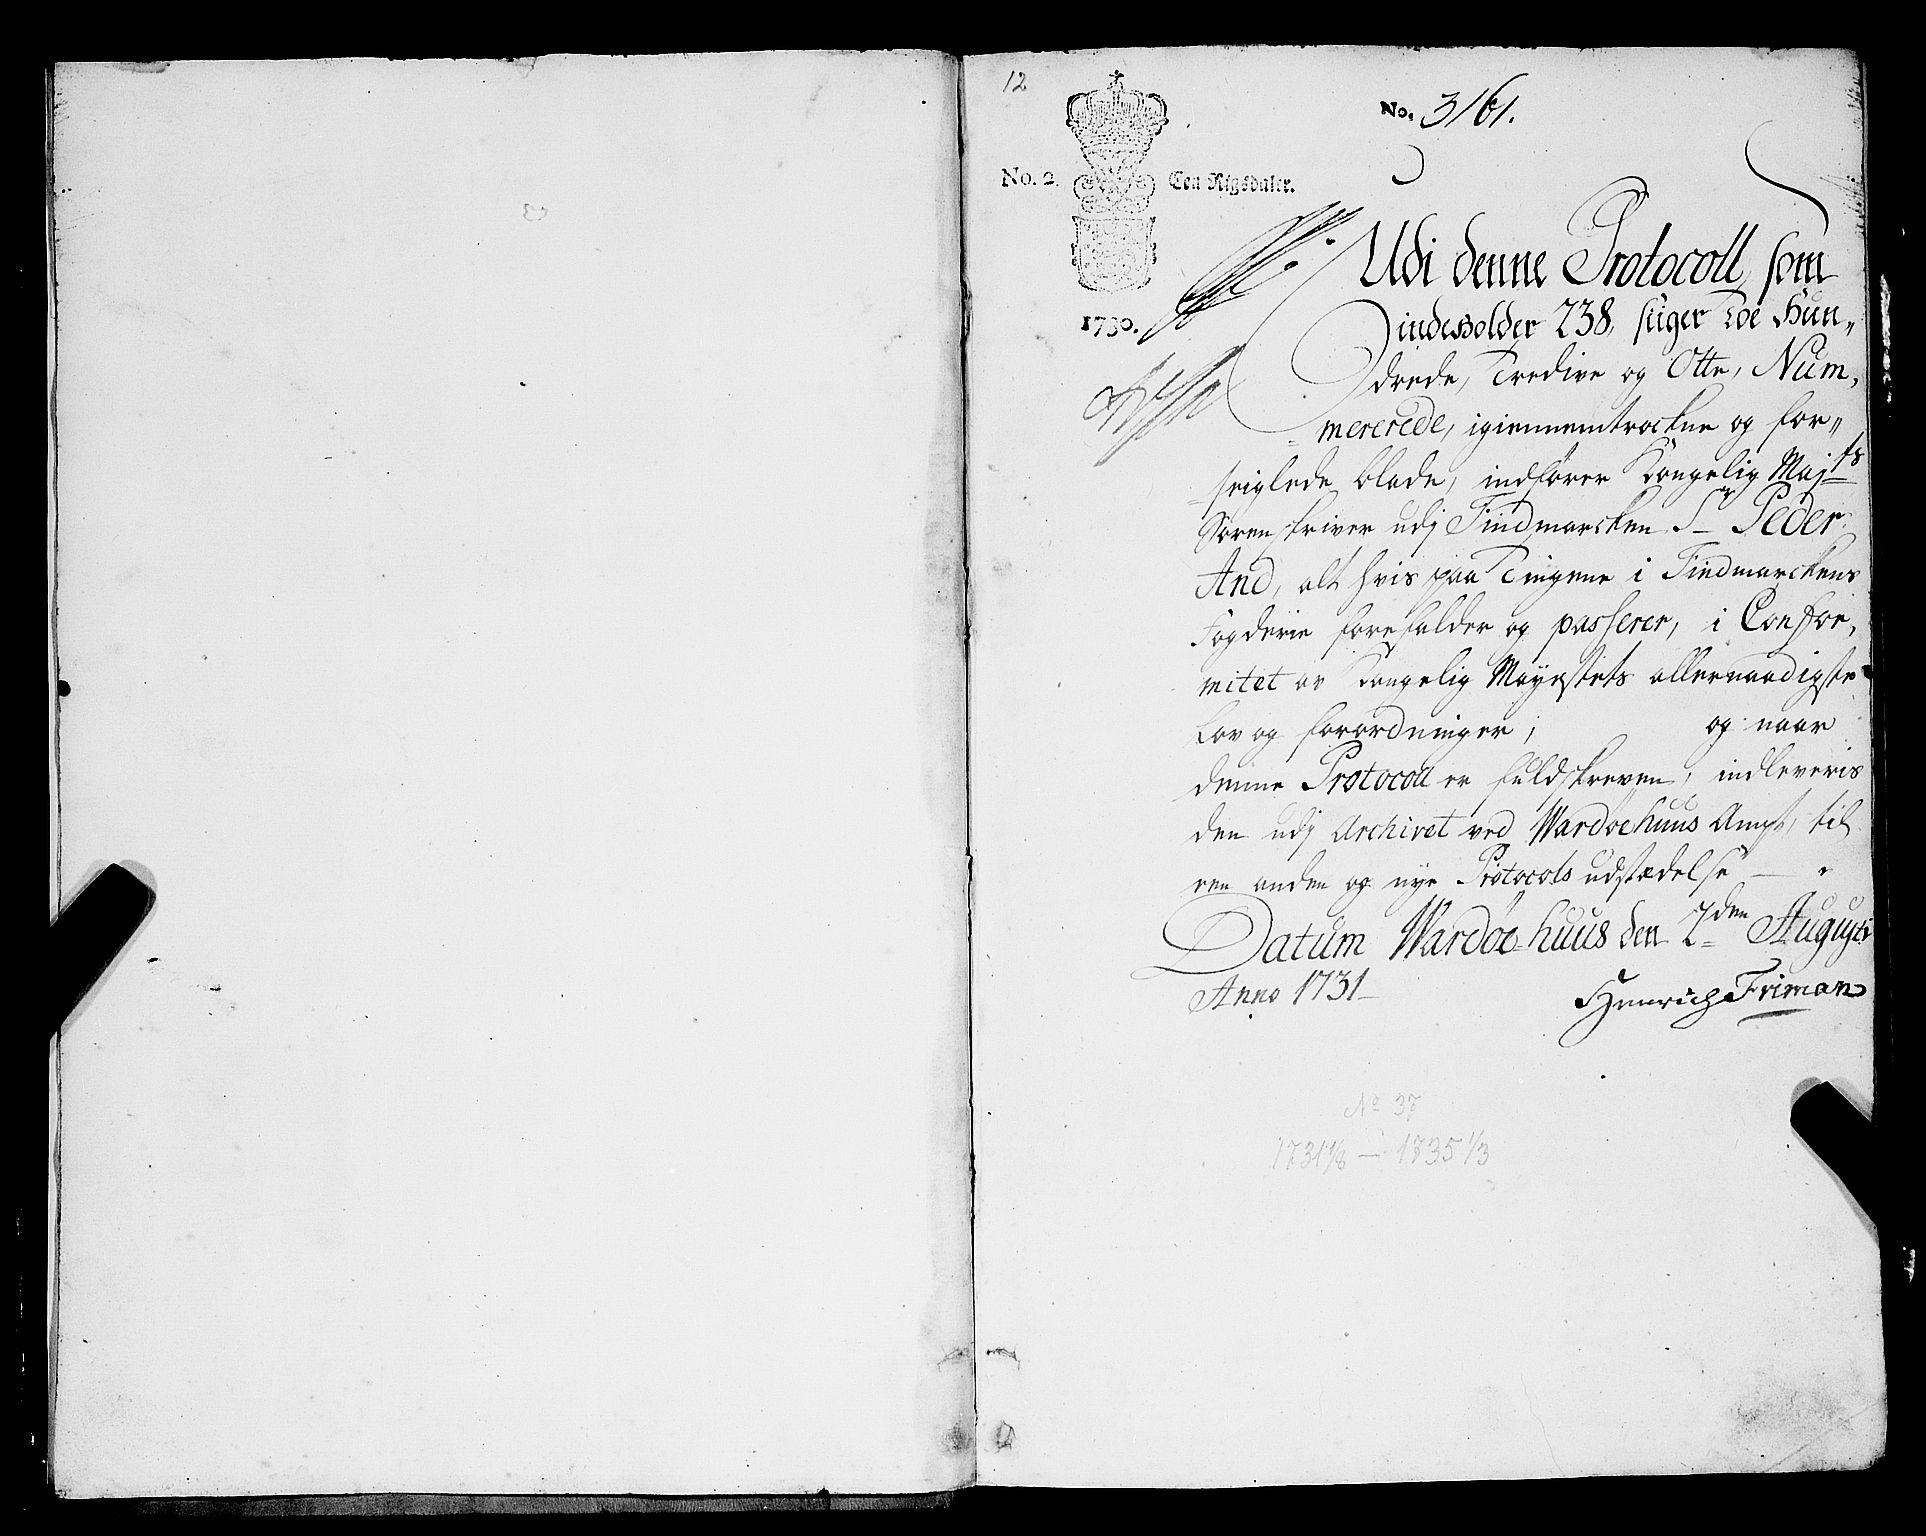 12
No. 3161.
No. 2. Een Rigsdaler.
1730.
Udi denne Protocoll, som
indeholder 238, siiger Toe Hun„
drede, Tredive og Otte, Num„
mererede, igiennemtrockne og for„
seiglede blade, indfører Kongelig Majts
Sorenskriver udj Findmarcken Sr Peder
And, alt hvis paa Tingene i Findmarckens
Fogderie forefalder og passerer, i Confor„
mitet av Kongelig Mayestets allernaadigste
Lov og forordninger; og naar
denne Protocoll er fuldskreven, indleveris
den udj Archivet ved Wardoehuus Ampt, til
een anden og nye Protocols udstædelse
Datum Wardøe-huus den 2den Augusti
Anno 1731
Henrich Friman
No 37
1731 1/8 — 1735 1/3